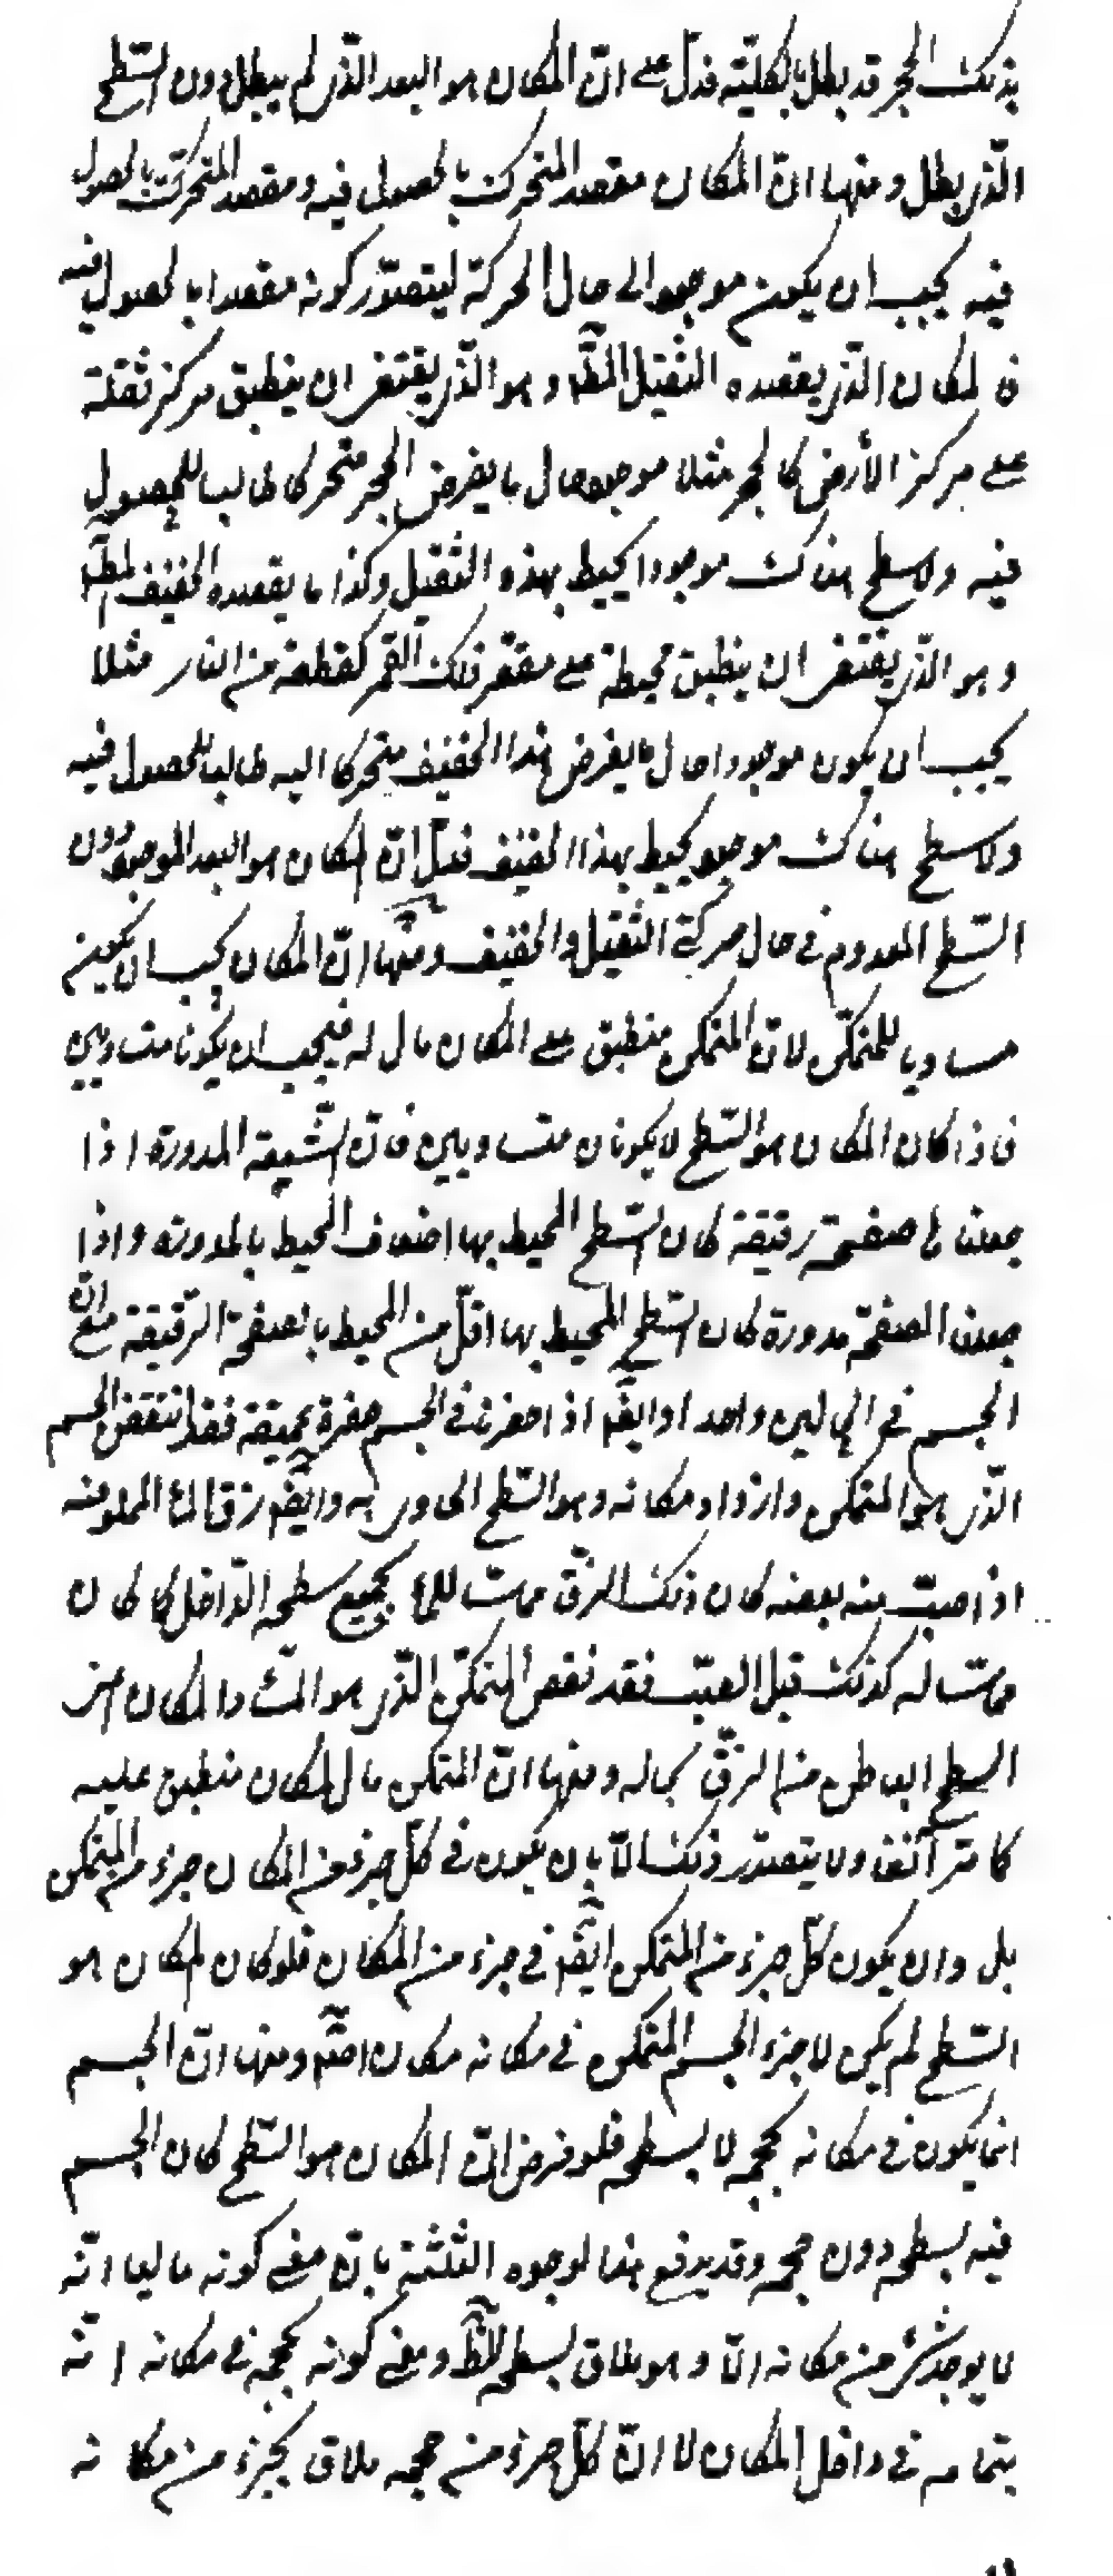 بذلك الحجر قد بطل بالكلية فدلّ على انّ المكان هو البعد الّذى لم يبطل دون السّطح
الّذى بطل ومنها انّ المكان مقصد المتحرك بالحصول فيه ومقصد المتحرّك بالحصول
فيه يجب ان يكون موجودا فى حال الحركة ليتصوّر كونه مقصدا بالحصول فيه
فالمكان الّذى يقصده الثقيل المط وهو الّذى يقتضى ان ينطبق مركز ثقله
على مركز الأرض كالحجر مثلا موجود حال ما يفرض الحجر متحركا طالبا للحصول
فيه ولا سطح هناك موجودا يحيط بهذه الثقيل وكذا ما يقصده الخفيف المط
وهو الّذى يقتضى ان ينطبق محيطه على مقعّر فلك القمر كقطعة من النار مثلا
يجب ان يكون موجودا حال ما يفرض هذا الخفيف متحركا اليه طالبا للحصول فيه
ولا سطح هناك موجود يحيط بهذا الخفيف فدلّ انّ المكان هو البعد الموجود دون
السّطح المعدوم فى حال حركتى الثقيل والخفيف ومنها انّ المكان يجب ان يكون
مساويا للمتمكّن لانّ المتمكن منطبق على المكان مال له فيجب ان يكونا متساويين
فاذا كان المكان هو السّطح لا يكونان متساويين فانّ الشّمعة المدورة اذا
جعلناها صفحة رقيقة كان السّطح المحيط بها اضعاف المحيط بالمدورة واذا
جعلنا الصفحة مدورة كان السّطح المحيط بها اقلّ من المحيط بالصفحة الرّقيقة مع انّ
الجسم فى الحالين واحد وايضا اذا حفرنا فى الجسم حفرة عميقة فقد انتقص الجسم
الّذى هو المتمكن وازداد مكانه وهو السّطح الحاوى به وايضا زق الماء المملو منه
اذا صبّ منه بعضه كان ذلك الزقّ مماسّا للماء بجميع سطحه الدّاخل كما كان
مماسّا له كذلك قبل الصّب فقد نقص المتمكّن الّذى هو الماء والمكان اعنى
السطح الباطن من الزقّ بحاله ومنها انّ المتمكن مال للمكان منطبق عليه
كما مرّ آنفا ولا يتصوّر ذلك الّا بان يكون فى كلّ جزء من المكان جزء من المتمكن
بل وان يكون كلّ جزء من المتمكن ايضا فى جزء من المكان فلو كان المكان هو
السّطح لم يكن لاجزاء الجسم المتمكن فى مكانه مكان اصلا ومنها انّ الجسم
انما يكون فى مكانه بحجمه لا بسطحه فلو فرض انّ المكان هو السّطح كان الجسم
فيه بسطحه دون حجمه وقد يدفع هذا الوجوه الثلثة بانّ معنى كونه ماليا انّه
لا يوجد شئ من مكانه الّا وهو ملاق بسطحه الظ ومعنى كونه بحجمه فى مكانه انّه
بتمامه فى داخل المكان لا انّ كلّ جزء من حجمه ملاق بجزء من مكانه